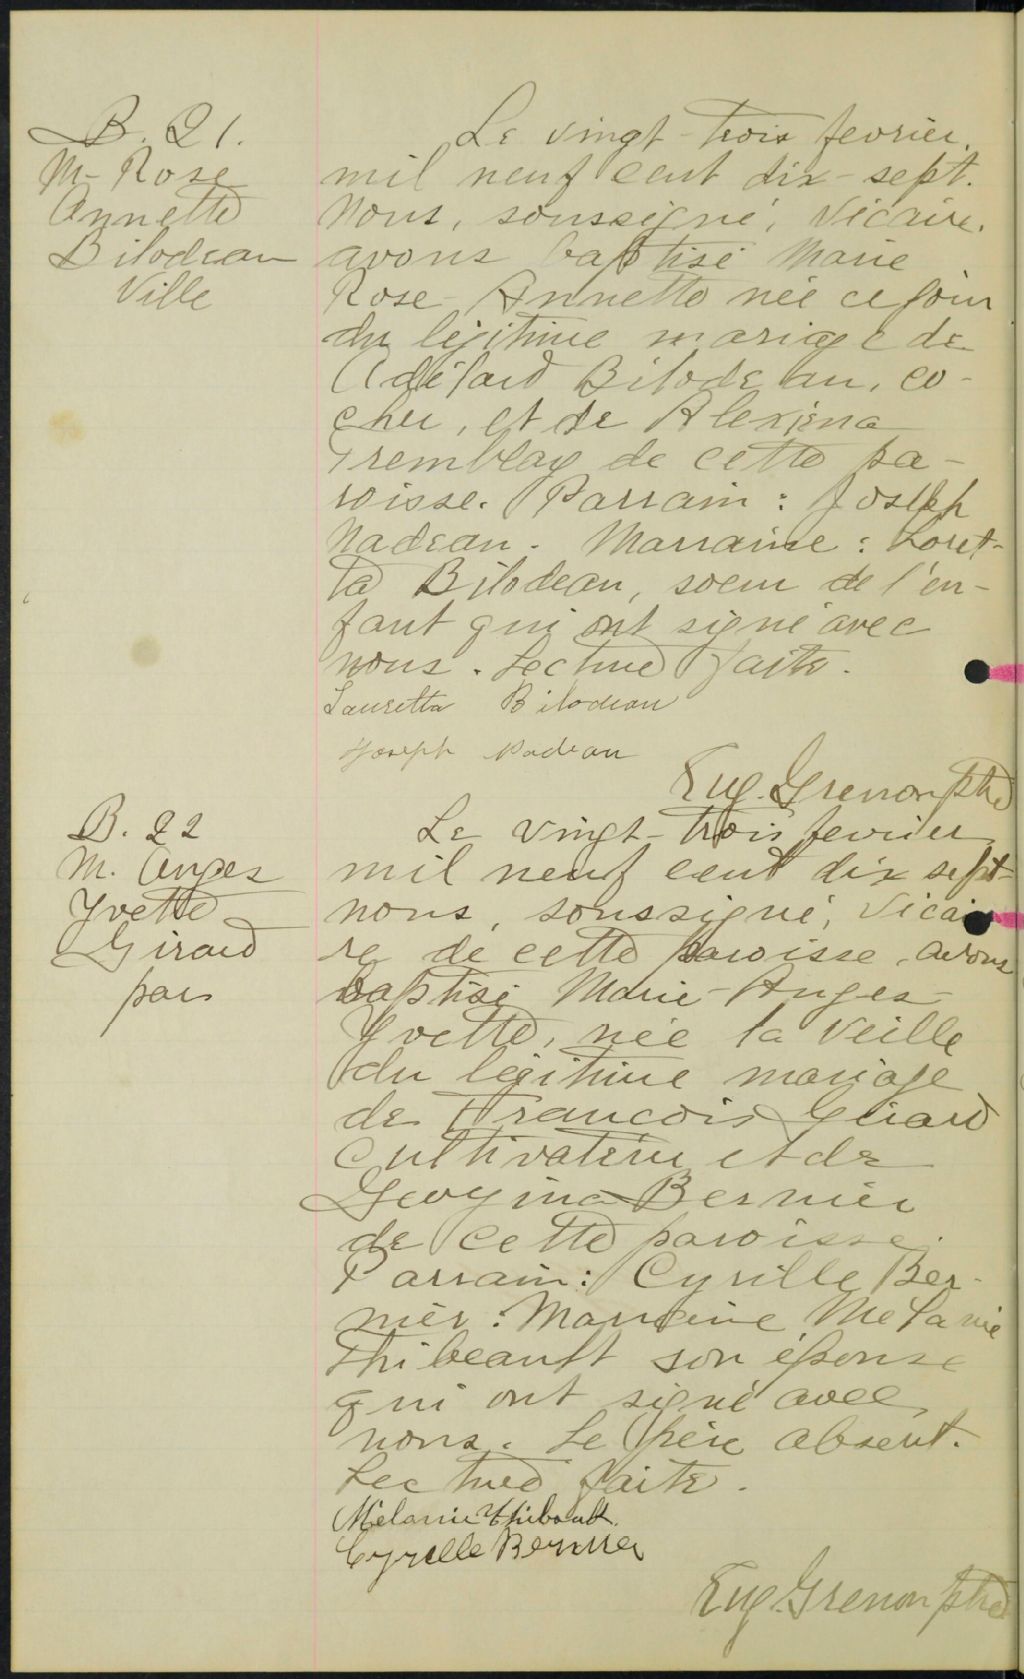 B. 21.
M- Rose
Annette
Bilodeau
Ville
Le vingt-trois fevrier,
mil neuf cent dix-sept.
Nous, soussigné, vicaire.
avons baptisé Marie
Rose-Annette née ce jour
du légitime mariage de
Adélard Bilodeau, co-
cher, et de Alexina
Tremblay de cette pa-
roisse. Parrain : Joseph
Nadeau. Marraine : Loret-
ta Bilodeau, soeur de l'en-
fant qui ont signé avec
nous. Lecture faite.
Lauretta Bilodeau
Joseph Nadeau
Eug. Grenon ptre
B. 22
M. Anges
Yvette
Girard
par
Le vingt-trois fevrier
mil neuf cent dix sept-
nous, soussigné, vicai
re de cette paroisse, avons
baptisé Marie-Anges-
Yvette, née la veille
du légitime mariage
de Francois Girard
cultivateur et de
Georgina Bernier
de cette paroisse.
Parrain : Cyrille Ber-
nier : Marraine Melanie
Thibeault son épouse
qui ont signé avec
nous. Le père absent.
Lecture faite.
Mélanie Thibault.
Cyrille Bernier
Eug. Grenon ptre